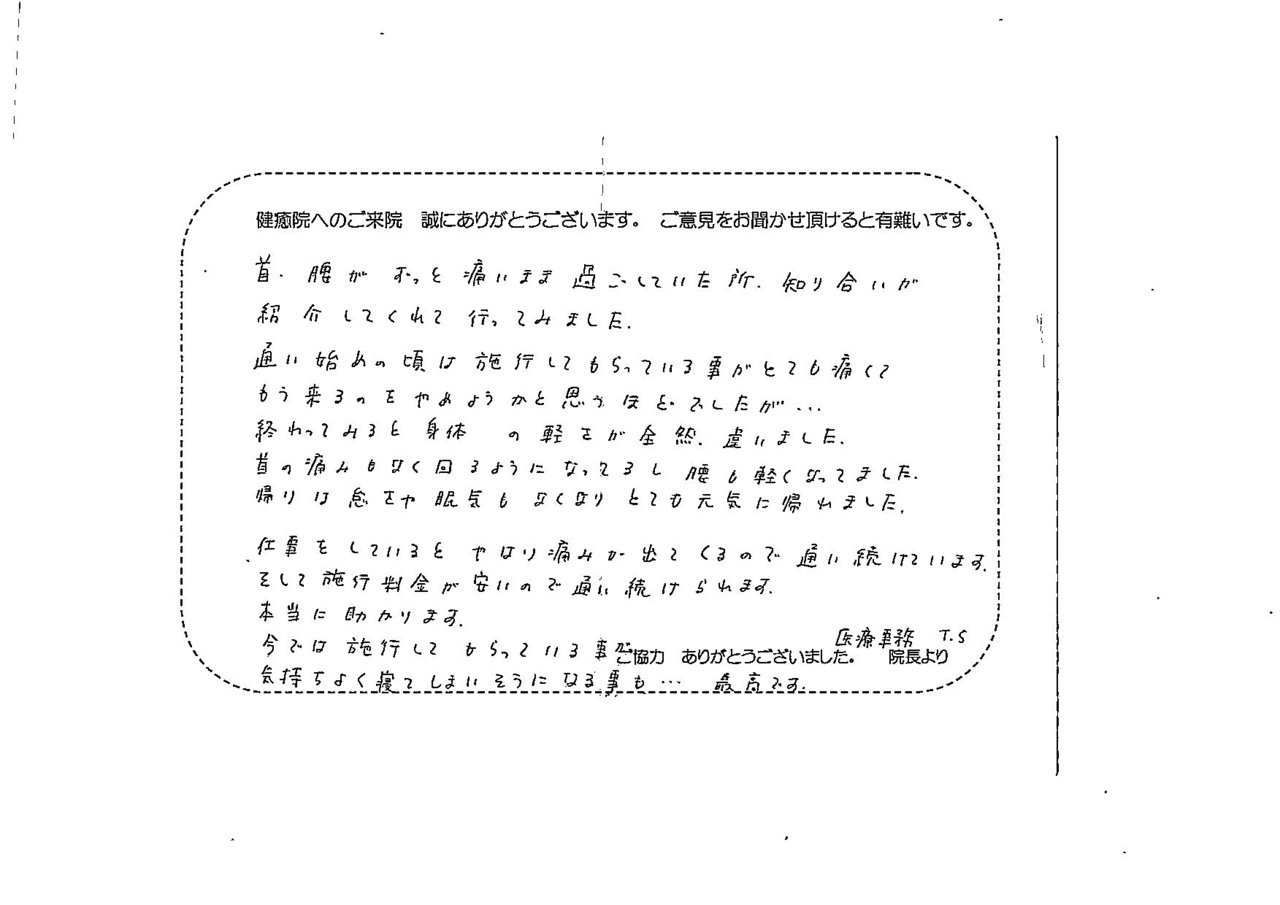 健癒院へのご来院　誠にありがとうございます。　ご意見をお聞かせ頂けると有難いです。
首、腰がずっと痛いまま過ごしていた所、知り合いが
紹介してくれて行ってみました。
通い始めの頃は施行してもらっている事がとても痛くて
もう来るのをやめようかと思うほどでしたが…
終わってみると身体の軽さが全然、違いました。
首の痛みもなく回るようになってるし腰も軽くなってました。
帰りは怠さや眠気もなくなりとても元気に帰れました。
仕事をしているとやはり痛みが出てくるので通い続けています。
そして施行料金が安いので通い続けられます。
本当に助かります。
医療事務　T.S
今では施行してもらっている事が
ご協力　ありがとうございました。　院長より
気持ちよく寝てしまいそうになる事も…　最高です。